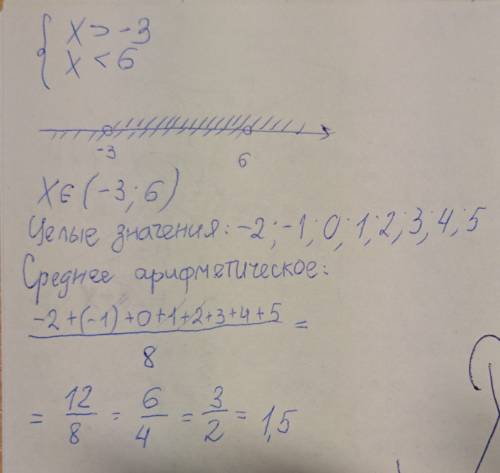 { x > -3
x < 6
-3 6
x ∈ (-3; 6)
Целые значения: -2; -1; 0; 1; 2; 3; 4; 5
Среднее арифметическое:
-2+(-1)+0+1+2+3+4+5 =
8
= 12/8 = 6/4 = 3/2 = 1,5